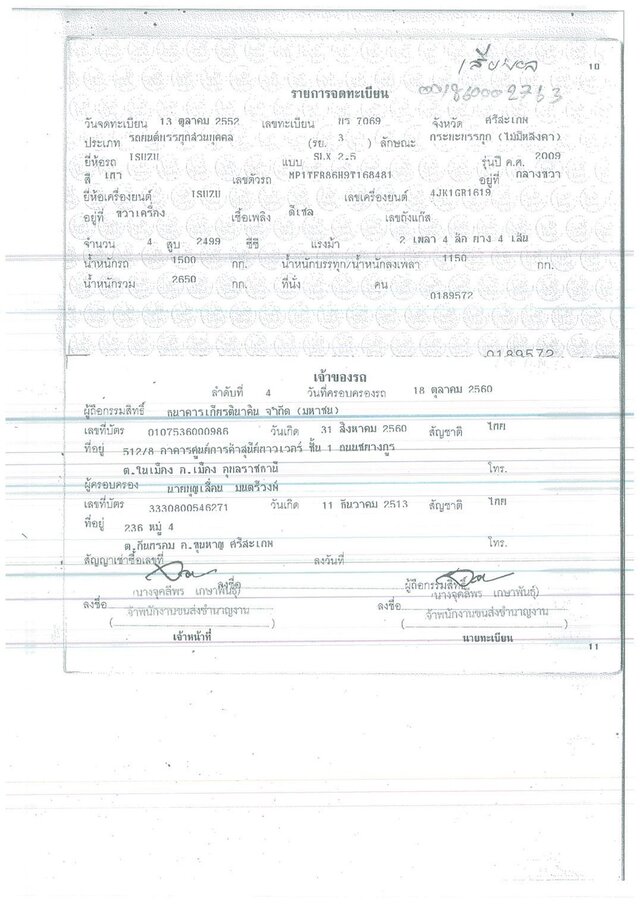 10
รายการจดทะเบียน
วันจดทะเบียน 13 ตุลาคม 2552 เลขทะเบียน 7069 จังหวัด ศรีสะเกษ
ประเภท รถยนต์บรรทุกส่วนบุคคล (รย. 3 ) ลักษณะ กระบะบรรทุก (ไม่มีหลังคา)
ยี่ห้อรถ ISUZU แบบ SLX 2.5 รุ่นปี ค.ศ. 2009
สี เทา เลขตัวรถ MP1TFR86H9T168481 อยู่ที่ กลางขวา
ยี่ห้อเครื่องยนต์ ISUZU เลขเครื่องยนต์ 4JK1GR1619
อยู่ที่ ขวาเครื่อง เชื้อเพลิง ดีเซล เลขถังแก๊ส
จำนวน 4 สูบ 2499 ซีซี แรงม้า 2 เพลา 4 ล้อ ยาง 4 เส้น
น้ำหนักรถ 1500 กก. น้ำหนักบรรทุก/น้ำหนักลงเพลา 1150 กก.
น้ำหนักรวม 2650 กก. ที่นั่ง คน
0189572
0189572
เจ้าของรถ
ลำดับที่ 4 วันที่ครอบครองรถ 18 ตุลาคม 2560
ผู้ถือกรรมสิทธิ์ ธนาคารเกียรตินาคิน จำกัด (มหาชน)
เลขที่บัตร 0107536000986 วันเกิด 31 สิงหาคม 2560 สัญชาติ ไทย
ที่อยู่ 512/8 อาคารศูนย์การค้าสุนีย์ทาวเวอร์ ชั้น 1 ถนนชยางกูร
ต.ในเมือง อ.เมือง อุบลราชธานี โทร.
ผู้ครอบครอง นายบุญเลื่อน มนตรีวงษ์
เลขที่บัตร 3330800546271 วันเกิด 11 กันวาคม 2513 สัญชาติ ไทย
ที่อยู่ 236 หมู่ 4
อ.ขุนหาญ ศรีสะเกษ โทร.
สัญญาเช่าซื้อเลขที่ ลงวันที่
ลงชื่อ ผู้ถือกรรมสิทธิ์
ลงชื่อ เจ้าพนักงานขนส่งชำนาญงาน ลงชื่อ เจ้าพนักงานขนส่งชำนาญงาน
เจ้าหน้าที่ นายทะเบียน
11